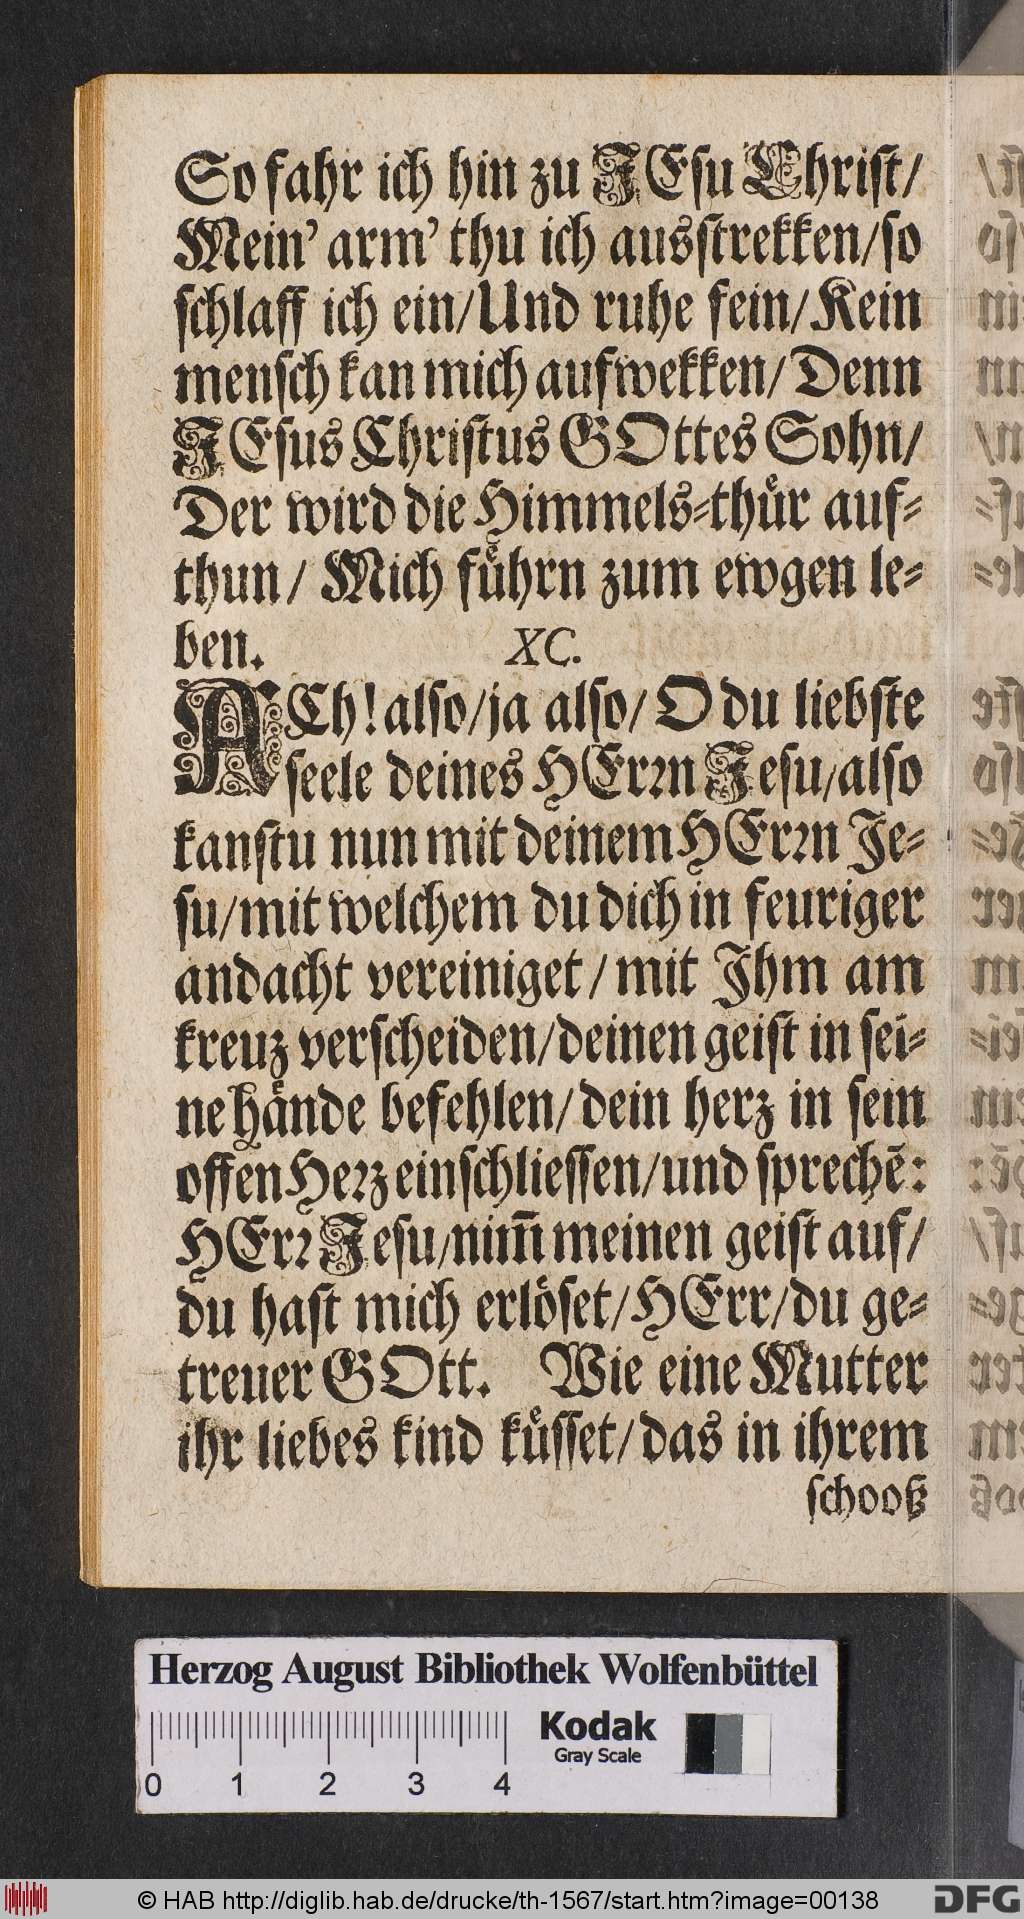 So fahr ich hin zu JEsu Christ/
Mein' arm' thu ich ausstrekken/so
schlaff ich ein/Und ruhe fein/Kein
mensch kan mich aufwekken/Denn
JEsus Christus GOttes Sohn/
Der wird die Himmels-thuͤr auf-
thun/ Mich fuͤhrn zum ewgen le-
ben. XC.
ACh! also/ja also/ O du liebste
seele deines HErꝛn Jesu/also
kanstu nun mit deinem HErꝛn Je-
su/mit welchem du dich in feuriger
andacht vereiniget/mit Ihm am
kreuz verscheiden/deinen geist in sei-
ne haͤnde befehlen/dein herz in sein
offen Heꝛz einschliessen/und sprechẽ:
HErꝛ Jesu/nim̃ meinen geist auf/
du hast mich erlöset/HErr/du ge-
treuer GOtt. Wie eine Mutter
ihr liebes kind kuͤsset/das in ihrem
schooß
Herzog August Bibliothek Wolfenbüttel
Kodak
Gray Scale
0 1 2 3 4
© HAB http://diglib.hab.de/drucke/th-1567/start.htm?image=00138
DFG